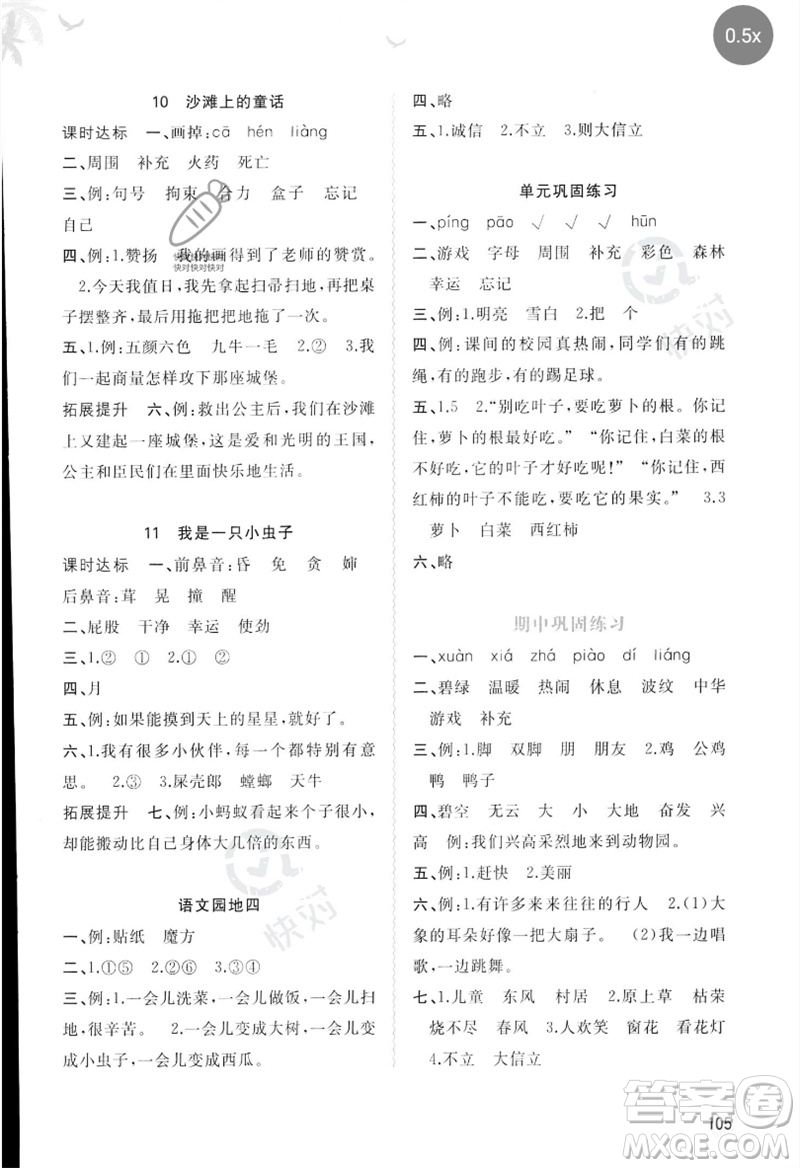 0.5x
10 沙滩上的童话
课时达标 一、画掉:cā hén liàng
二、周围 补充 火药 死亡
三、例:句号 拘束 合力 盒子 忘记
自己
四、例:1.赞扬 我的画得到了老师的赞赏。
快对快对快对
快对快对快对
2.今天我值日,我先拿起扫帚扫地,再把桌
子摆整齐,最后用拖把把地拖了一次。
五、1.例:五颜六色 九牛一毛 2.② 3.我
们一起商量怎样攻下那座城堡。
拓展提升 六、例:救出公主后,我们在沙滩
上又建起一座城堡,这是爱和光明的王国,
公主和臣民们在里面快乐地生活。
11 我是一只小虫子
课时达标 一、前鼻音:昏 免 贪 婶
后鼻音:茸 晃 撞 醒
二、屁股 干净 幸运 使劲
三、1.② ① 2.① ②
四、月
五、例:如果能摸到天上的星星,就好了。
六、1.我有很多小伙伴,每一个都特别有意
思。 2.③ 3.屎壳郎 螳螂 天牛
拓展提升 七、例:小蚂蚁看起来个子很小,
却能搬动比自己身体大几倍的东西。
快对
语文园地四
一、例:贴纸 魔方
二、1.①⑤ 2.②⑥ 3.③④
三、例:1.一会儿洗菜,一会儿做饭,一会儿拖
地,很辛苦。 2.一会儿变成大树,一会儿变
成小虫子,一会儿变成西瓜。
四、略
五、1.诚信 2.不立 3.则大信立
单元巩固练习
一、píng pāo √ √ hūn
二、游戏 字母 周围 补充 彩色 森林
幸运 忘记
三、例:1.明亮 雪白 2.把 个
四、例:课间的校园真热闹,同学们有的跳
绳,有的跑步,有的踢足球。
快对
五、1.5 2.“别吃叶子,要吃萝卜的根。你记
住,萝卜的根最好吃。” “你记住,白菜的根不
好吃,它的叶子才好吃呢!” “你记住,西
红柿的叶子不能吃,要吃它的果实。” 3.3
萝卜 白菜 西红柿
六、略
期中巩固练习
一、xuàn xiá zhá piào dí liáng
二、碧绿 温暖 热闹 休息 波纹 中华
游戏 补充
三、例:1.脚 双脚 朋 朋友 2.鸡 公鸡
鸭 鸭子
四、碧空 无云 大 小 大地 奋发 兴
高 例:我们兴高采烈地去动物园。
五、例:1.赶快 2.美丽
六、例:1.有许多来来往往的行人 2.(1)大
象的耳朵好像一把大扇子。 (2)我一边唱
歌,一边跳舞。
快对
七、1.儿童 东风 村居 2.原上草 枯荣
烧不尽 春风 3.人欢笑 窗花 看花灯
4.不立 大信立
105
答案圈
MXQE.COM